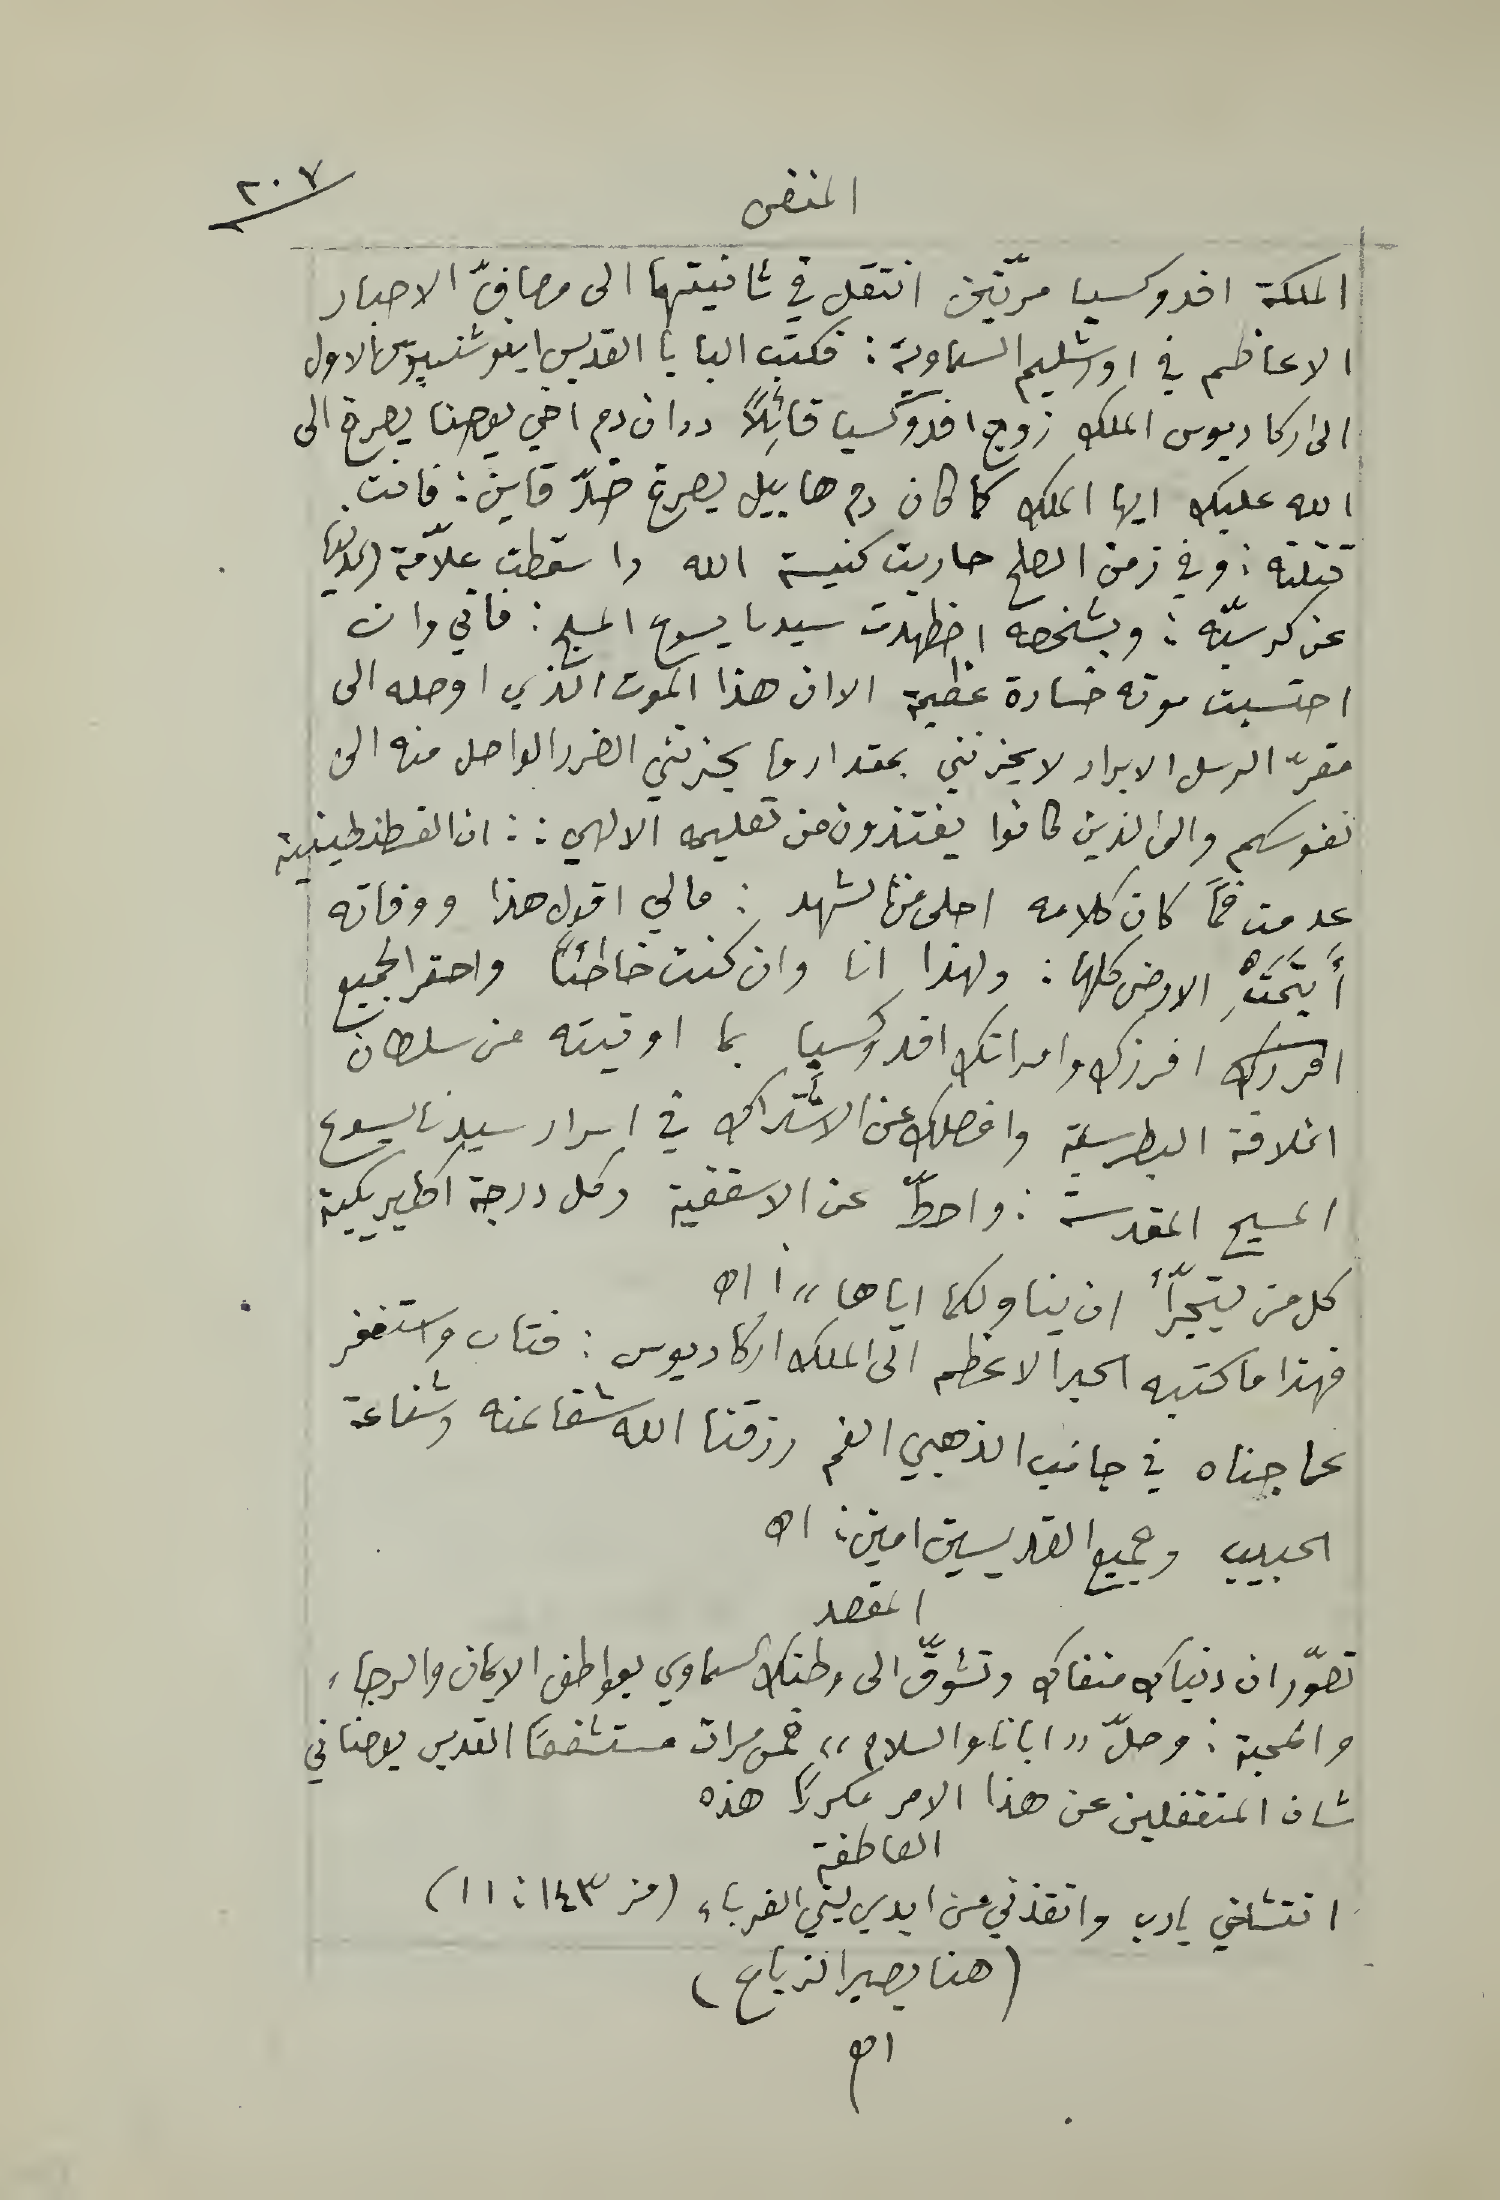 ٢٠٧
المنفى
الملكة افدوكسيا مرّتين انتقل في ثانيتها الى مصافّ الاحبار
الاعاظم في اورشليم السماوية : فكتب البابا القديس اينوشنسيوس الاول
الى اركاديوس الملك زوج افدوكسيا قائلاً „ ان دم اخي يوحنا يصرخ الى
الله عليك ايها الملك كما كان دم هابيل يصرخ ضدّ قاين : فانت
قتلته : وفي زمن الصلح حاربت كنيسة الله واسقطت علاّمة
عن كرسيّه : وبشخصه اضطهدت سيدنا يسوع المسيح : فاني وان
احتسبت موته خسارة عظيمة الا ان هذا الموت الذي اوصله الى
مقرّ الرسل الابرار لا يحزنني بمقدار ما يحزنني الضرر الواصل منه الى
نفوسكم والى الذين كانوا يغتذون من تعليمه الالهي : : ان القسطنطينية
عدمت فماً كان كلامه احلى من الشهد : مالي اقول هذا ووفاته
أَيتَمَتْ الارض كلها : ولهذا انا وان كنت خاطئاً واحقر الجميع
افرزك افرزك وامراتك افدوكسيا بما اوتيته من سلطان
الخلافة البطرسية وافصلك عن الاشتراك في اسرار سيدنا يسوع
المسيح المقدسة : واحطّ عن الاسقفية وكل درجة اكليريكية
كل من يتجرّأ ان يناولكما اياها „ اه
فهذا ما كتبه الحبر الاعظم الى الملك اركاديوس : فتاب واستغفر
عما جناه في جانب الذهبي الفم رزقنا الله شفاعته وشفاعة
الحبيب وجميع القديسين امين : اه
المقصد
تصوّر ان دنياك منفاك وتشوّق الى وطنك السماوي بعواطف الايمان والرجاء
والمحبة : وصلّ „ ابانا والسلام „ خمس مرات مستشفعاً القديس يوحنا في
شان المتغفلين عن هذا الامر مكرراً هذه
العاطفة
انتشلني يا رب وانقذني من ايدي بني الغرباء (مز ١٤٣ : ١١)
(هنا يصير الزياح)
اه